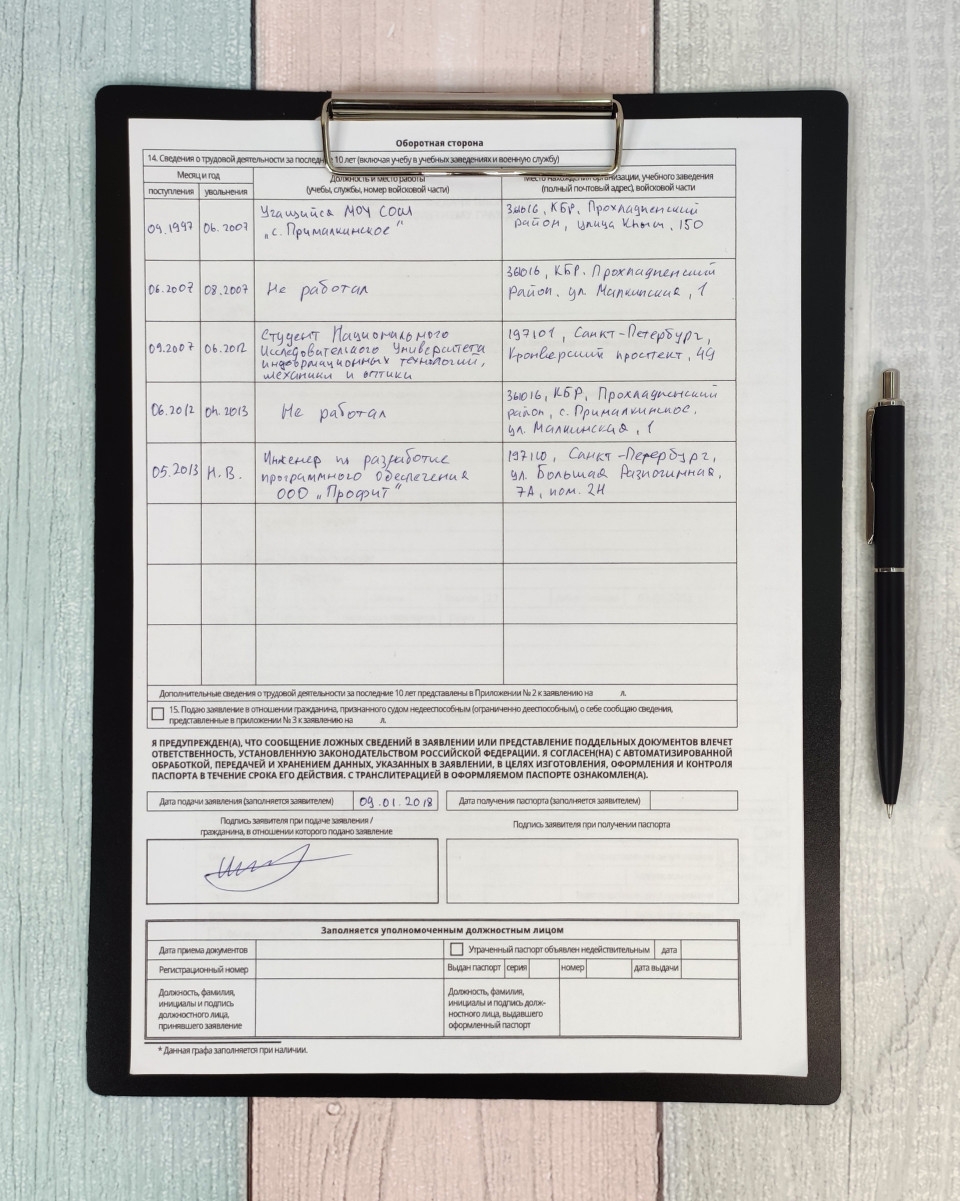 Оборотная сторона
14. Сведения о трудовой деятельности за последние 10 лет (включая учебу в учебных заведениях и военную службу)
Месяц и год
Должность и место работы
Место нахождения организации, учебного заведения
поступления
увольнения
(учебы, службы, номер войсковой части)
(полный почтовый адрес), войсковой части
09.1997
06.2007
Учащийся МОУ СОШ
„с. Прималкинское“
361016, КБР, Прохладненский
район, улица 150
06.2007
08.2007
Не работал
361016, КБР, Прохладненский
район, ул. Малкинская, 1
09.2007
06.2012
Студент Национального
Исследовательского Университета
информационных технологий,
механики и оптики
197101, Санкт-Петербург,
Кронверкский проспект, 49
06.2012
04.2013
Не работал
361016, КБР, Прохладненский
район, с. Прималкинское,
ул. Малкинская, 1
05.2013
Н.В.
Инженер по разработке
программного обеспечения
ООО „Профит“
197110, Санкт-Петербург,
ул. Большая Разночинная,
7А, пом. 2Н
Дополнительные сведения о трудовой деятельности за последние 10 лет представлены в Приложении № 2 к заявлению на л.
15. Подаю заявление в отношении гражданина, признанного судом недееспособным (ограниченно дееспособным), о себе сообщаю сведения,
представленные в приложении № 3 к заявлению на л.
Я ПРЕДУПРЕЖДЕН(А), ЧТО СООБЩЕНИЕ ЛОЖНЫХ СВЕДЕНИЙ В ЗАЯВЛЕНИИ ИЛИ ПРЕДСТАВЛЕНИЕ ПОДДЕЛЬНЫХ ДОКУМЕНТОВ ВЛЕЧЕТ
ОТВЕТСТВЕННОСТЬ, УСТАНОВЛЕННУЮ ЗАКОНОДАТЕЛЬСТВОМ РОССИЙСКОЙ ФЕДЕРАЦИИ. Я СОГЛАСЕН(НА) С АВТОМАТИЗИРОВАННОЙ
ОБРАБОТКОЙ, ПЕРЕДАЧЕЙ И ХРАНЕНИЕМ ДАННЫХ, УКАЗАННЫХ В ЗАЯВЛЕНИИ, В ЦЕЛЯХ ИЗГОТОВЛЕНИЯ, ОФОРМЛЕНИЯ И КОНТРОЛЯ
ПАСПОРТА В ТЕЧЕНИЕ СРОКА ЕГО ДЕЙСТВИЯ. С ТРАНСЛИТЕРАЦИЕЙ В ОФОРМЛЯЕМОМ ПАСПОРТЕ ОЗНАКОМЛЕН(А).
Дата подачи заявления (заполняется заявителем)
09.01.2018
Дата получения паспорта (заполняется заявителем)
Подпись заявителя при подаче заявления /
гражданина, в отношении которого подано заявление
Подпись заявителя при получении паспорта
Заполняется уполномоченным должностным лицом
Дата приема документов
Утраченный паспорт объявлен недействительным
дата
Регистрационный номер
Выдан паспорт
серия
номер
дата выдачи
Должность, фамилия,
инициалы и подпись
должностного лица,
принявшего заявление
Должность, фамилия,
инициалы и подпись долж-
ностного лица, выдавшего
оформленный паспорт
* Данная графа заполняется при наличии.